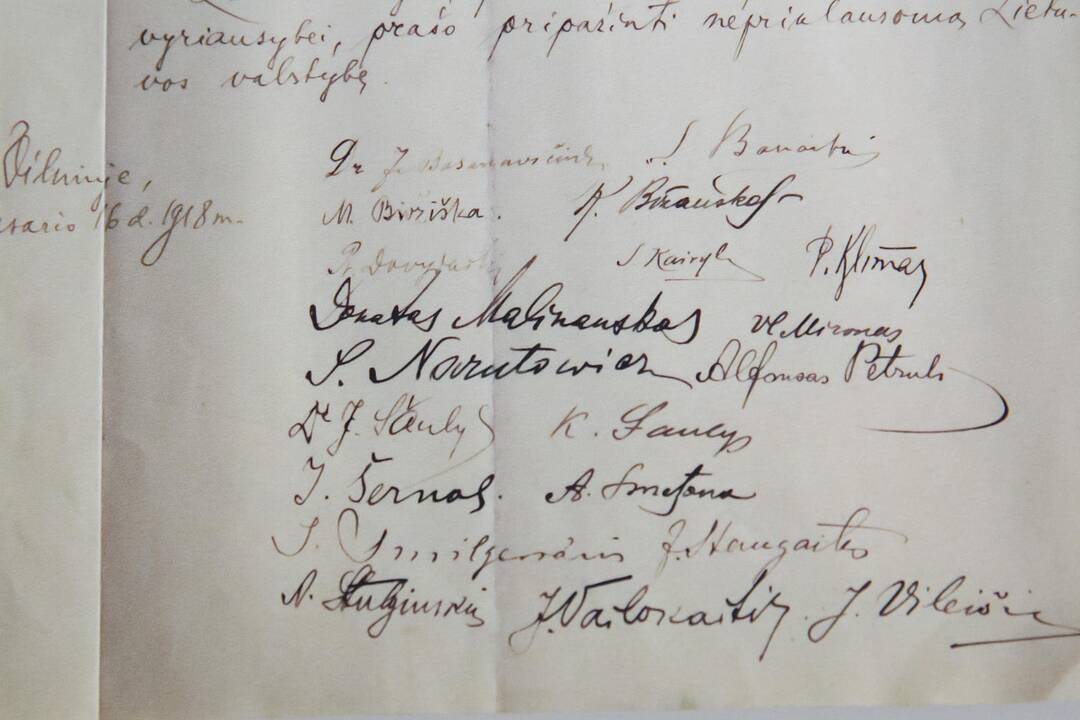 vyriausybei, prašo pripažinti nepriklausomą Lietu-
vos valstybę.
Vilniuje,
vasario 16 d. 1918 m.
Dr J. Basanavičius S. Banaitis
M. Biržiška. K. Bizauskas
Pr. Dovydaitis S Kairys P. Klimas
Donatas Malinauskas Vl Mironas
S. Narutowicz Alfonsas Petrulis
Dr J. Šaulys K. Šaulys
J. Šernas. A. Smetona
J. Smilgevičius J. Staugaitis
A. Stulginskis J. Vailokaitis J. Vileišis